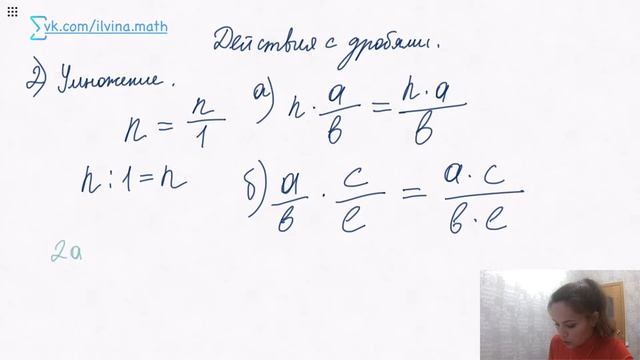 vk.com/ilvina.math
Действия с дробями.
2) Умножение.
n = n/1
а) n · a/b = n · a/b
n : 1 = n
б) a/b · c/e = a · c/b · e
2a